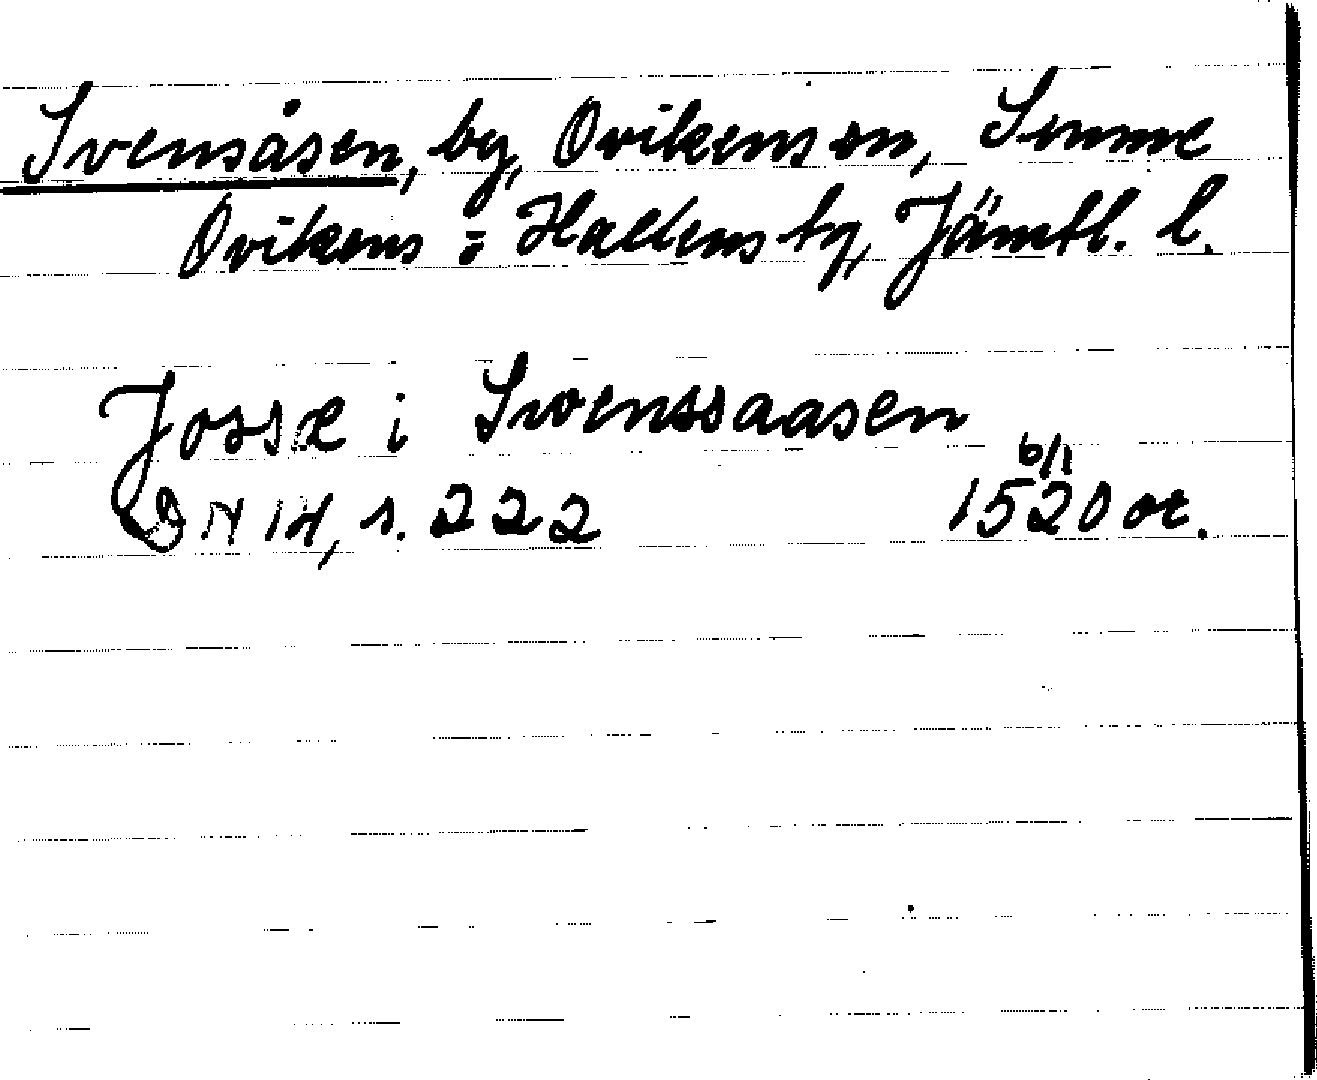 Svensåsen, by, Ovikens sn, Sunne
Ovikens o Hallens tg, Jämtl. l.
Josse i Swenssaasen
6/1
DN 14, s. 222 1520 or.